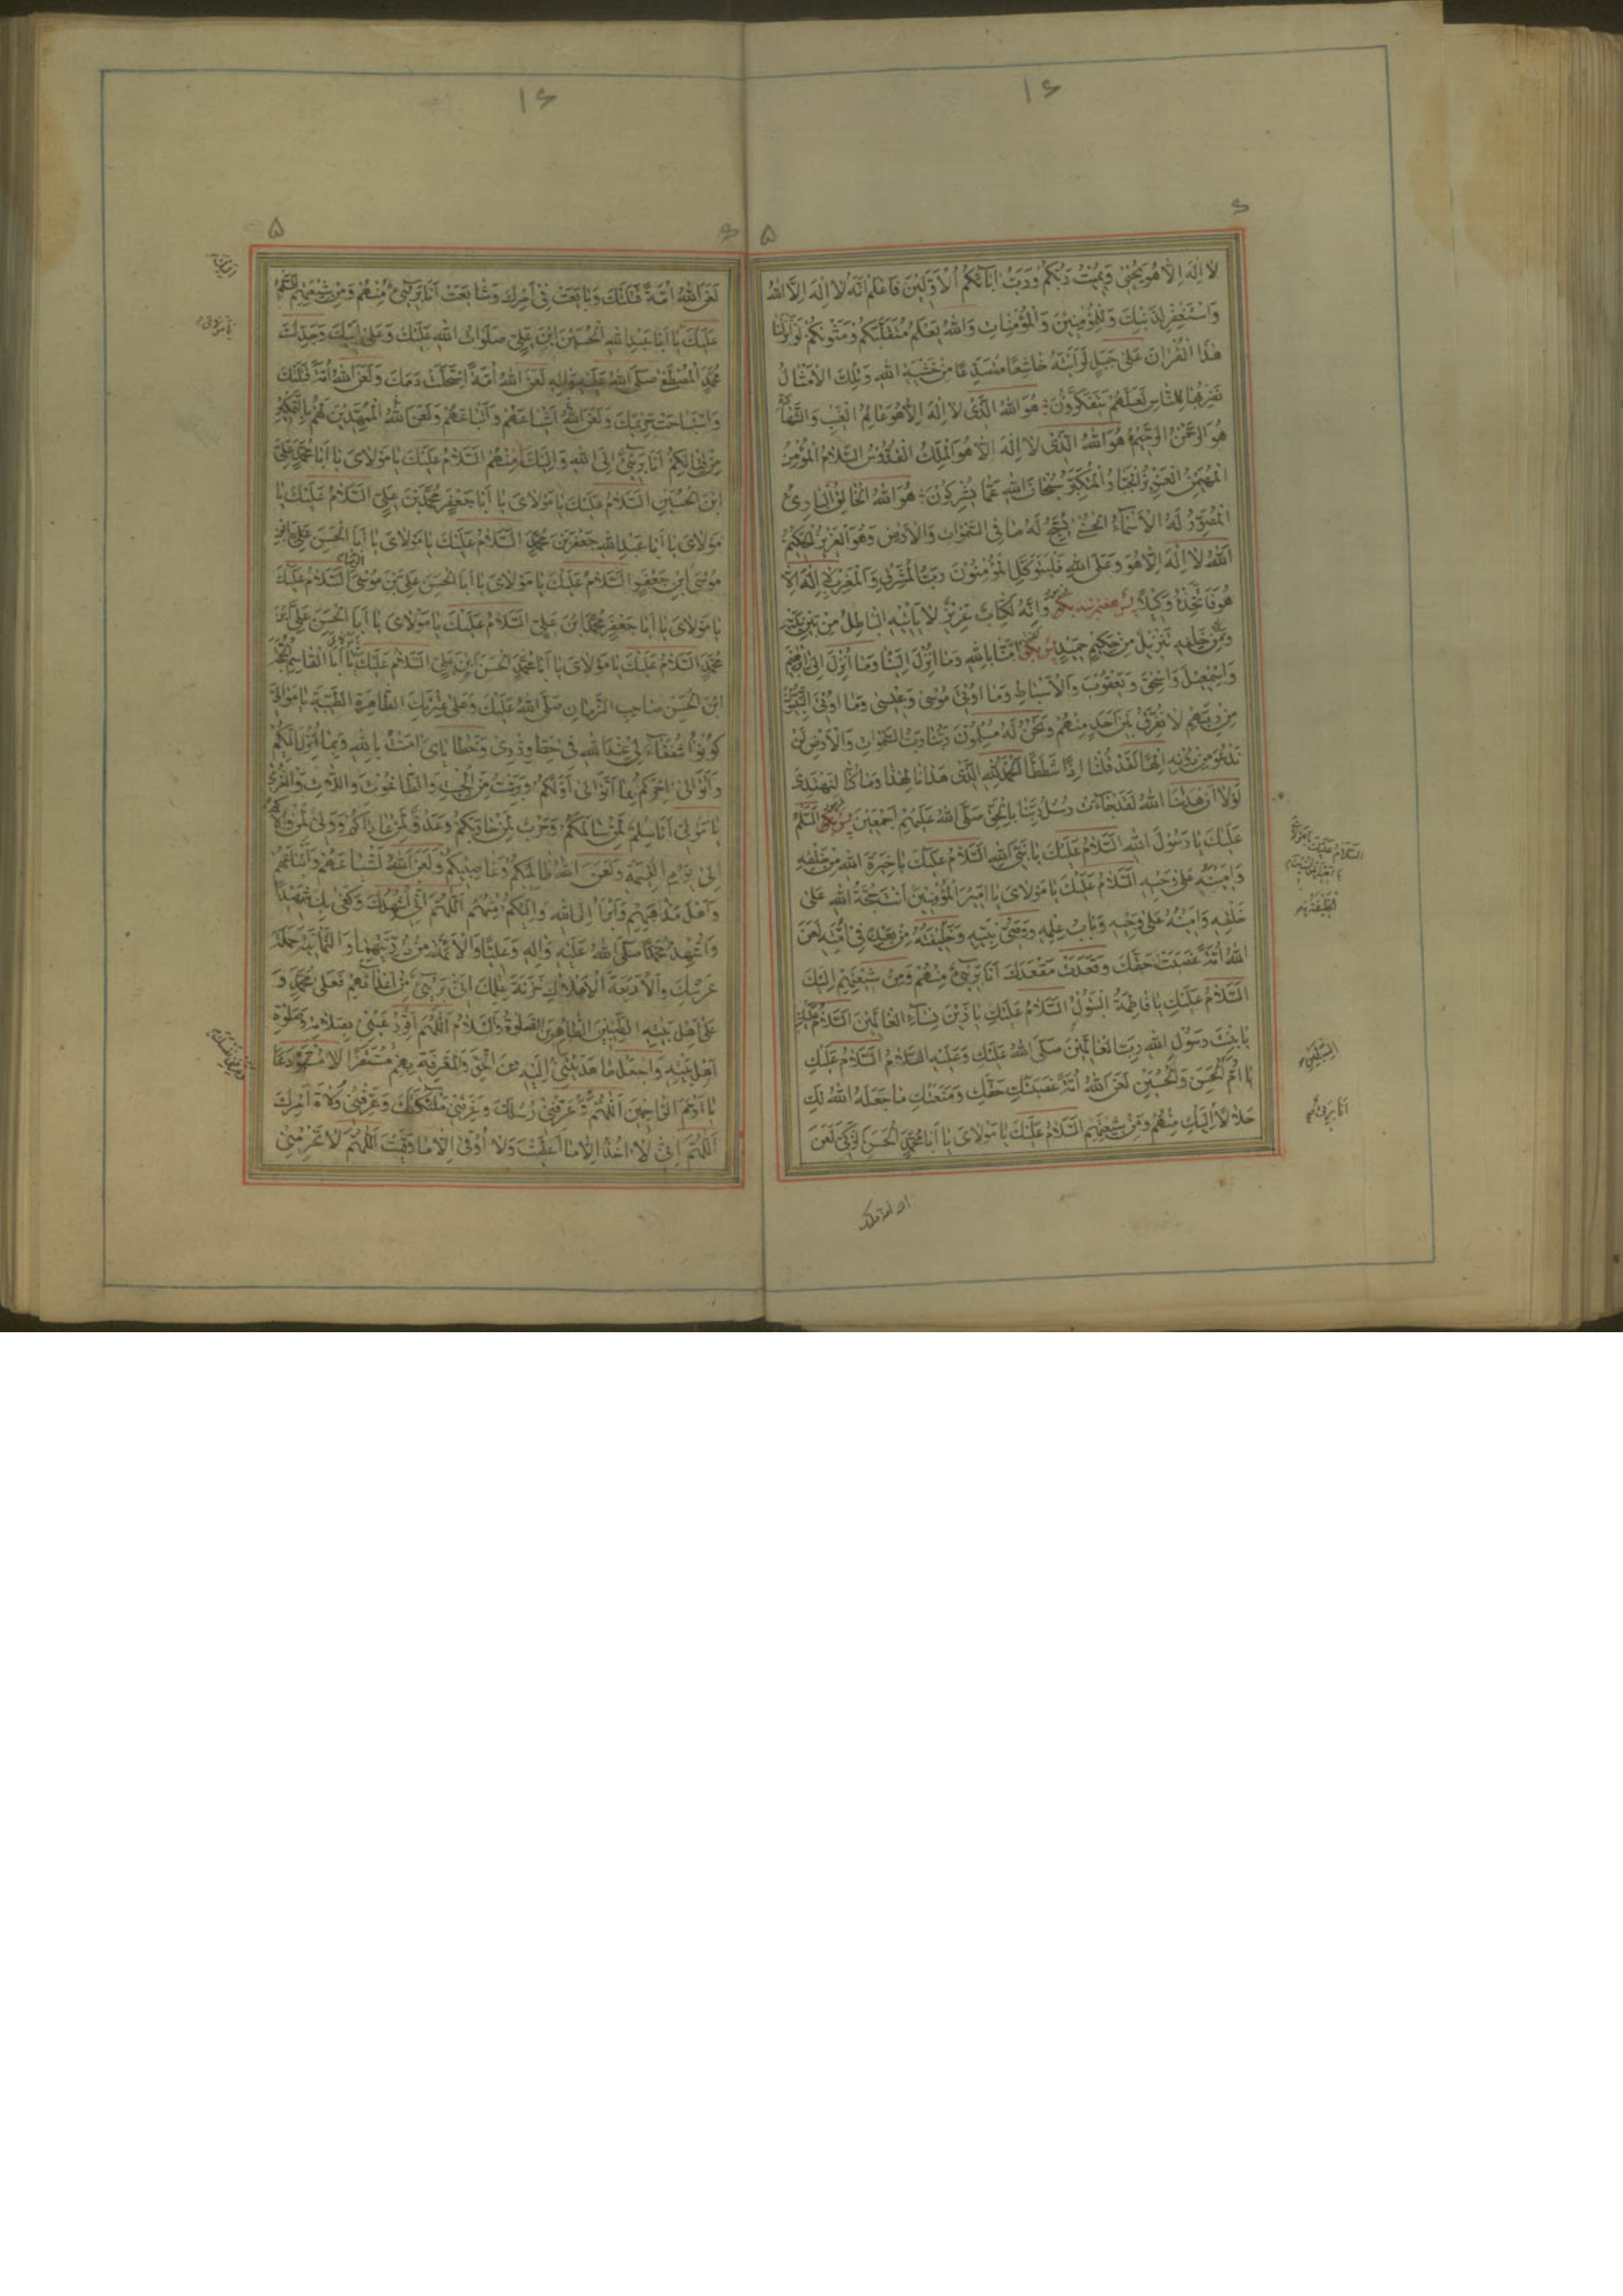 ۱۶
۶
۵
لا اِلهَ اِلّا هُوَ يُحْيي وَيُميتُ رَبُّكُمْ وَرَبُّ ابآئِكُمُ الْاَوَّلينَ فَاعْلَمْ اَنَّهُ لا اِلهَ اِلَّا اللهُ
وَاسْتَغْفِرْ لِذَنْبِكَ وَلِلْمُؤْمِنينَ وَالْمُؤْمِناتِ وَاللهُ يَعْلَمُ مُتَقَلَّبَكُمْ وَمَثْويكُمْ لَوْ اَنْزَلْنا
هذَا الْقُرْانَ عَلى جَبَلٍ لَرَاَيْتَهُ خاشِعًا مُتَصَدِّعًا مِنْ خَشْيَةِ اللهِ وَتِلْكَ الْاَمْثالُ
نَضْرِبُها لِلنّاسِ لَعَلَّهُمْ يَتَفَكَّرُونَ هُوَ اللهُ الَّذي لا اِلهَ اِلّا هُوَ عالِمُ الْغَيْبِ وَالشَّهادَةِ
هُوَ الرَّحْمنُ الرَّحيمُ هُوَ اللهُ الَّذي لا اِلهَ اِلّا هُوَ الْمَلِكُ الْقُدُّوسُ السَّلامُ الْمُؤْمِنُ
الْمُهَيْمِنُ الْعَزيزُ الْجَبّارُ الْمُتَكَبِّرُ سُبْحانَ اللهِ عَمّا يُشْرِكُونَ هُوَ اللهُ الْخالِقُ الْبارِئُ
الْمُصَوِّرُ لَهُ الْاَسْماءُ الْحُسْنى يُسَبِّحُ لَهُ ما فِي السَّمواتِ وَالْاَرْضِ وَهُوَ الْعَزيزُ الْحَكيمُ
اَللهُ لا اِلهَ اِلّا هُوَ وَعَلَى اللهِ فَلْيَتَوَكَّلِ الْمُؤْمِنُونَ رَبُّ الْمَشْرِقِ وَالْمَغْرِبِ لا اِلهَ اِلّا
هُوَ فَاتَّخِذْهُ وَكيلًا وَاِنَّهُ لَكِتابٌ عَزيزٌ لا يَاْتيهِ الْباطِلُ مِنْ بَيْنِ يَدَيْهِ
وَلا مِنْ خَلْفِهِ تَنْزيلٌ مِنْ حَكيمٍ حَميدٍ پس بگو امَنّا بِاللهِ وَما اُنْزِلَ اِلَيْنا وَما اُنْزِلَ اِلى اِبْرهيمَ
وَاِسْمعيلَ وَاِسْحقَ وَيَعْقُوبَ وَالْاَسْباطِ وَما اُوتِيَ مُوسى وَعيسى وَما اُوتِيَ النَّبِيُّونَ
مِنْ رَبِّهِمْ لا نُفَرِّقُ بَيْنَ اَحَدٍ مِنْهُمْ وَنَحْنُ لَهُ مُسْلِمُونَ رَبُّنا رَبُّ السَّمواتِ وَالْاَرْضِ لَنْ
نَدْعُوَ مِنْ دُونِهِ اِلهًا لَقَدْ قُلْنا اِذًا شَطَطًا اَلْحَمْدُ لِلّهِ الَّذي هَدانا لِهذا وَما كُنّا لِنَهْتَدِيَ
لَوْلا اَنْ هَدينَا اللهُ لَقَدْ جاءَتْ رُسُلُ رَبِّنا بِالْحَقِّ صَلَّى اللهُ عَلَيْهِمْ اَجْمَعينَ پس بگو اَلسَّلامُ
عَلَيْكَ يا رَسُولَ اللهِ اَلسَّلامُ عَلَيْكَ يا نَبِيَّ اللهِ اَلسَّلامُ عَلَيْكَ يا خِيَرَةَ اللهِ مِنْ خَلْقِهِ
وَاَمينَهُ عَلى وَحْيِهِ اَلسَّلامُ عَلَيْكَ يا مَوْلايَ يا اَميرَ الْمُؤْمِنينَ اَنْتَ حُجَّةُ اللهِ عَلى
خَلْقِهِ وَاَمينُهُ عَلى وَحْيِهِ وَبابُ عِلْمِهِ وَوَصِيُّ نَبِيِّهِ وَخَليفَتُهُ مِنْ بَعْدِهِ في اُمَّتِهِ لَعَنَ
اللهُ اُمَّةً غَصَبَتْ حَقَّكَ وَقَعَدَتْ مَقْعَدَكَ اَنَا بَريءٌ مِنْهُمْ وَمِنْ شيعَتِهِمْ اِلَيْكَ
اَلسَّلامُ عَلَيْكِ يا فاطِمَةُ الْبَتُولُ اَلسَّلامُ عَلَيْكِ يا زَيْنَ نِسآءِ الْعالَمينَ اَلسَّلامُ عَلَيْكِ
يا بِنْتَ رَسُولِ اللهِ رَبِّ الْعالَمينَ صَلَّى اللهُ عَلَيْكِ وَعَلَيْهِ السَّلامُ اَلسَّلامُ عَلَيْكِ
يا اُمَّ الْحَسَنِ وَالْحُسَيْنِ لَعَنَ اللهُ اُمَّةً غَصَبَتْكِ حَقَّكِ وَمَنَعَتْكِ ما جَعَلَهُ اللهُ لَكِ
حَلالًا اِلَيْكِ مِنْهُمْ وَمِنْ شيعَتِهِمْ اَلسَّلامُ عَلَيْكَ يا مَوْلايَ يا اَبا مُحَمَّدٍ الْحَسَنَ الزَّكِيَّ لَعَنَ
۱۶
۶
۵
لَعَنَ اللهُ اُمَّةً قَتَلَتْكَ وَبايَعَتْ في اَمْرِكَ وَشايَعَتْ اَنَا بَريءٌ مِنْهُمْ وَمِنْ شيعَتِهِمْ اَلسَّلامُ
عَلَيْكَ يا اَبا عَبْدِ اللهِ الْحُسَيْنَ ابْنَ عَلِيٍّ صَلَواتُ اللهِ عَلَيْكَ وَعَلى اَبيكَ وَجَدِّكَ
مُحَمَّدٍ الْمُصْطَفى صَلَّى اللهُ عَلَيْهِ وَالِهِ لَعَنَ اللهُ اُمَّةً اسْتَحَلَّتْ دَمَكَ وَلَعَنَ اللهُ اُمَّةً قَتَلَتْكَ
وَاسْتَباحَتْ حَريمَكَ وَلَعَنَ اللهُ اَشْياعَهُمْ وَاَتْباعَهُمْ وَلَعَنَ اللهُ الْمُمَهِّدينَ لَهُمْ بِالتَّمْكينِ
مِنْ قِتالِكُمْ اَنَا بَريءٌ اِلَى اللهِ وَاِلَيْكَ مِنْهُمْ اَلسَّلامُ عَلَيْكَ يا مَوْلايَ يا اَبا مُحَمَّدٍ عَلِيَّ
ابْنَ الْحُسَيْنِ اَلسَّلامُ عَلَيْكَ يا مَوْلايَ يا اَبا جَعْفَرٍ مُحَمَّدَ بْنَ عَلِيٍّ اَلسَّلامُ عَلَيْكَ يا
مَوْلايَ يا اَبا عَبْدِ اللهِ جَعْفَرَ بْنَ مُحَمَّدٍ اَلسَّلامُ عَلَيْكَ يا مَوْلايَ يا اَبَا الْحَسَنِ
مُوسَى ابْنَ جَعْفَرٍ اَلسَّلامُ عَلَيْكَ يا مَوْلايَ يا اَبَا الْحَسَنِ عَلِيَّ بْنَ مُوسى اَلسَّلامُ عَلَيْكَ
يا مَوْلايَ يا اَبا جَعْفَرٍ مُحَمَّدَ ابْنَ عَلِيٍّ اَلسَّلامُ عَلَيْكَ يا مَوْلايَ يا اَبَا الْحَسَنِ عَلِيَّ بْنَ
مُحَمَّدٍ اَلسَّلامُ عَلَيْكَ يا مَوْلايَ يا اَبا مُحَمَّدٍ الْحَسَنَ ابْنَ عَلِيٍّ اَلسَّلامُ عَلَيْكَ يا اَبَا الْقاسِمِ مُحَمَّدَ
ابْنَ الْحَسَنِ صاحِبَ الزَّمانِ صَلَّى اللهُ عَلَيْكَ وَعَلى عِتْرَتِكَ الطّاهِرَةِ الطَّيِّبَةِ يا مَوالِيَّ
كُونُوا شُفَعآءَ لي عِنْدَ اللهِ في حَطِّ وِزْري وَخَطايايَ امَنْتُ بِاللهِ وَبِما اُنْزِلَ اِلَيْكُمْ
وَاَتَوالى اخِرَكُمْ بِما اَتَوالى اَوَّلَكُمْ وَبَرِئْتُ مِنَ الْجِبْتِ وَالطّاغُوتِ وَاللّاتِ وَالْعُزّى
يا مَوالِيَّ اَنَا سِلْمٌ لِمَنْ سالَمَكُمْ وَحَرْبٌ لِمَنْ حارَبَكُمْ وَعَدُوٌّ لِمَنْ عاداكُمْ وَوَلِيٌّ لِمَنْ والاكُمْ
اِلى يَوْمِ الْقِيمَةِ وَلَعَنَ اللهُ ظالِميكُمْ وَغاصِبيكُمْ وَلَعَنَ اللهُ اَشْياعَهُمْ وَاَتْباعَهُمْ
وَاَهْلَ مَذْهَبِهِمْ وَاَبْرَأُ اِلَى اللهِ وَاِلَيْكُمْ مِنْهُمْ اَللّهُمَّ اِنّي اُشْهِدُكَ وَكَفى بِكَ شَهيدًا
وَاُشْهِدُ مُحَمَّدًا صَلَّى اللهُ عَلَيْهِ وَالِهِ وَعَلِيًّا وَالْاَئِمَّةَ مِنْ ذُرِّيَّتِهِما وَالثَّمانِيَةَ حَمَلَةَ
عَرْشِكَ وَالْاَرْبَعَةَ الْاَمْلاكَ خَزَنَةَ عِلْمِكَ اَنّي بَريءٌ مِنْ اَعْدائِهِمْ فَعَلى مُحَمَّدٍ وَ
عَلى اَهْلِ بَيْتِهِ الطَّيِّبينَ الطّاهِرينَ الصَّلوةُ وَالسَّلامُ
اَهْلِ بَيْتِهِ وَاجْعَلْ ما هَدَيْتَني اِلَيْهِ مِنَ الْحَقِّ وَالْمَعْرِفَةِ بِهِمْ مُسْتَقَرًّا لا مُسْتَوْدَعًا
يا اَرْحَمَ الرّاحِمينَ اَللّهُمَّ وَعَرِّفْني رُسُلَكَ وَعَرِّفْني مَلئِكَتَكَ وَعَرِّفْني وُلاةَ اَمْرِكَ
اَللّهُمَّ اِنّي لا اخُذُ اِلّا ما اَعْطَيْتَ وَلا اُوقى اِلّا ما وَقَيْتَ اَللّهُمَّ لا تَحْرِمْني